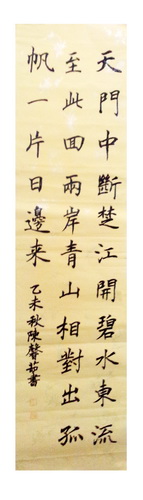 天門中斷楚江開碧水東流
至此回兩岸青山相對出孤
帆一片日邊来
乙未秋陳馨茹書